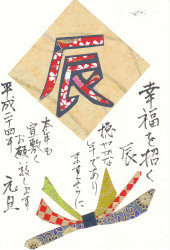 辰
幸福を招く
辰
穏やかな
年であり
ますように
本年も
宜敷く
お願い致します
平成二十四年 元旦